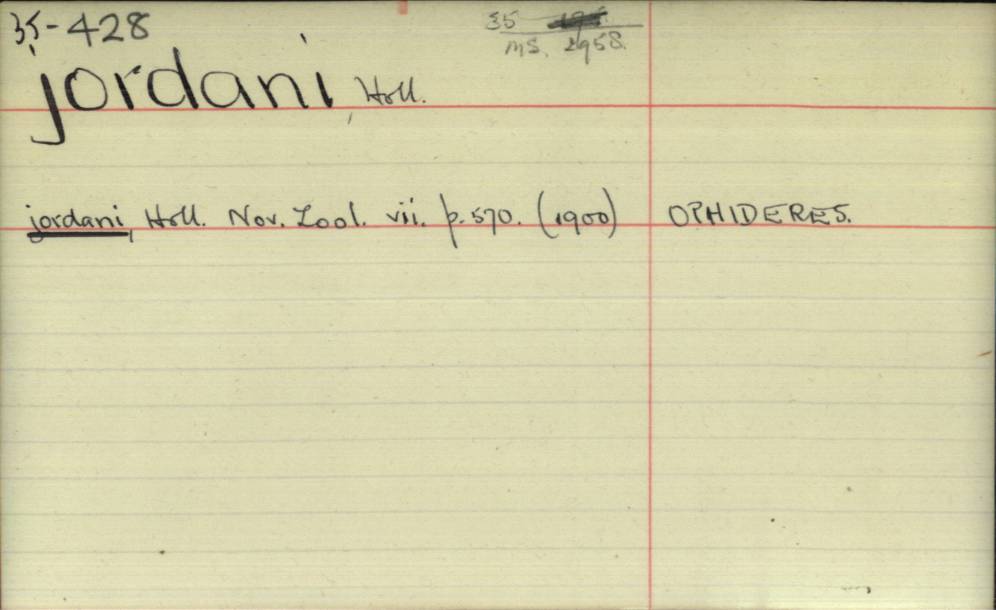 35-428
35
MS. 2958.
jordani, Holl.
jordani, Holl. Nov. Zool. vii. p. 570. (1900) OPHIDERES.